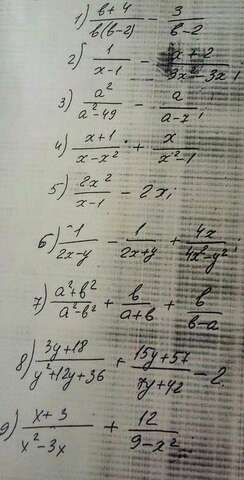 1) в+4/в(в-2) - 3/в-2
2) 1/x-1 - x+2/3x²-3x;
3) a²/a²-49 - a/a-x;
4) x+1/x-x² + x/x²-1;
5) 2x²/x-1 - 2x;
6) 1/2x-y - 1/2x+y + 4x/4x²-y²;
7) a²+в²/a²-в² + в/a+в + в/в-a
8) 3y+18/y²+12y+36 + 15y+57/7y+42 - 2
9) x+3/x²-3x + 12/9-x²